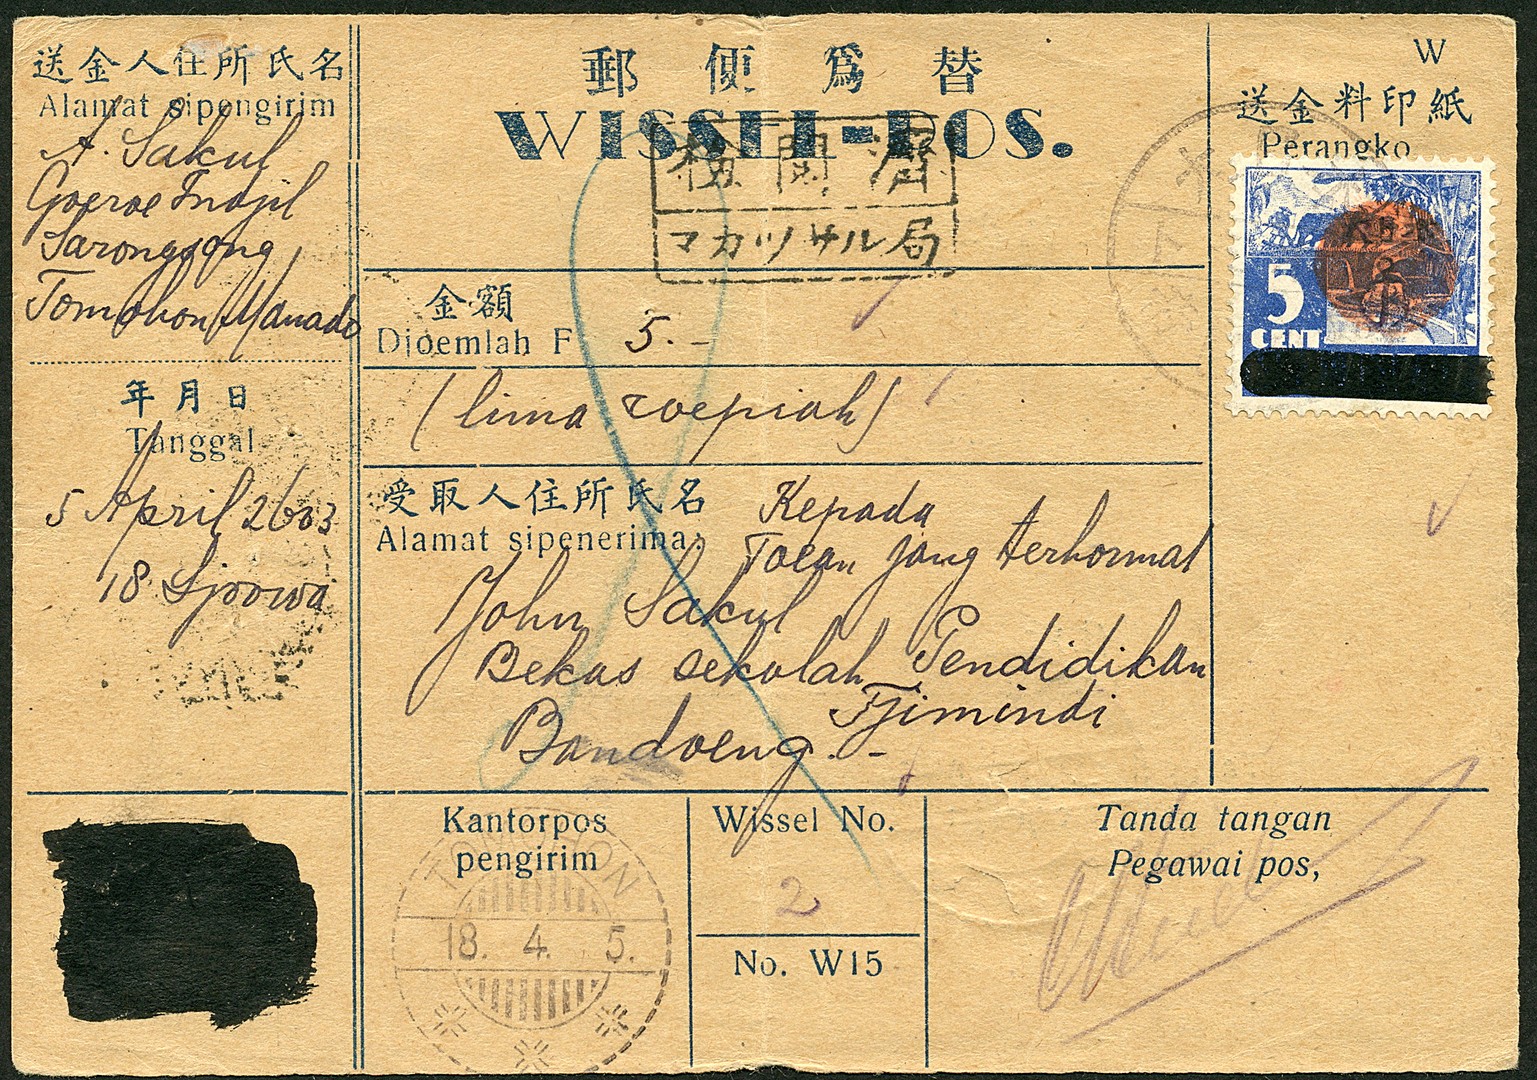 送金人住所氏名
Alamat sipengirim
A. Sakul
Goeroe Indjil
Sarongsong
Tomohon, Manado
年月日
Tanggal
5 April 2603
18 Sjoowa
郵便為替
WISSEL-POS.
検閲済
マカツサル局
金額
Djoemlah F
5.-
(lima roepiah)
受取人住所氏名
Alamat sipenerima:
Kepada
Toean jang terhormat
John Sakul
Bekas sekolah Pendidikan
Tjimindi
Bandoeng.-
W
送金料印紙
Perangko
5
CENT
Kantorpos
pengirim
TOMOHON
18. 4. 5.
Wissel No.
2
No. W15
Tanda tangan
Pegawai pos,